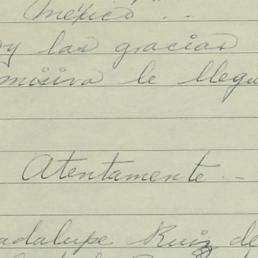 México . .
y las gracias
misiva le llegu
Atentamente . -
adalupe Ruiz de